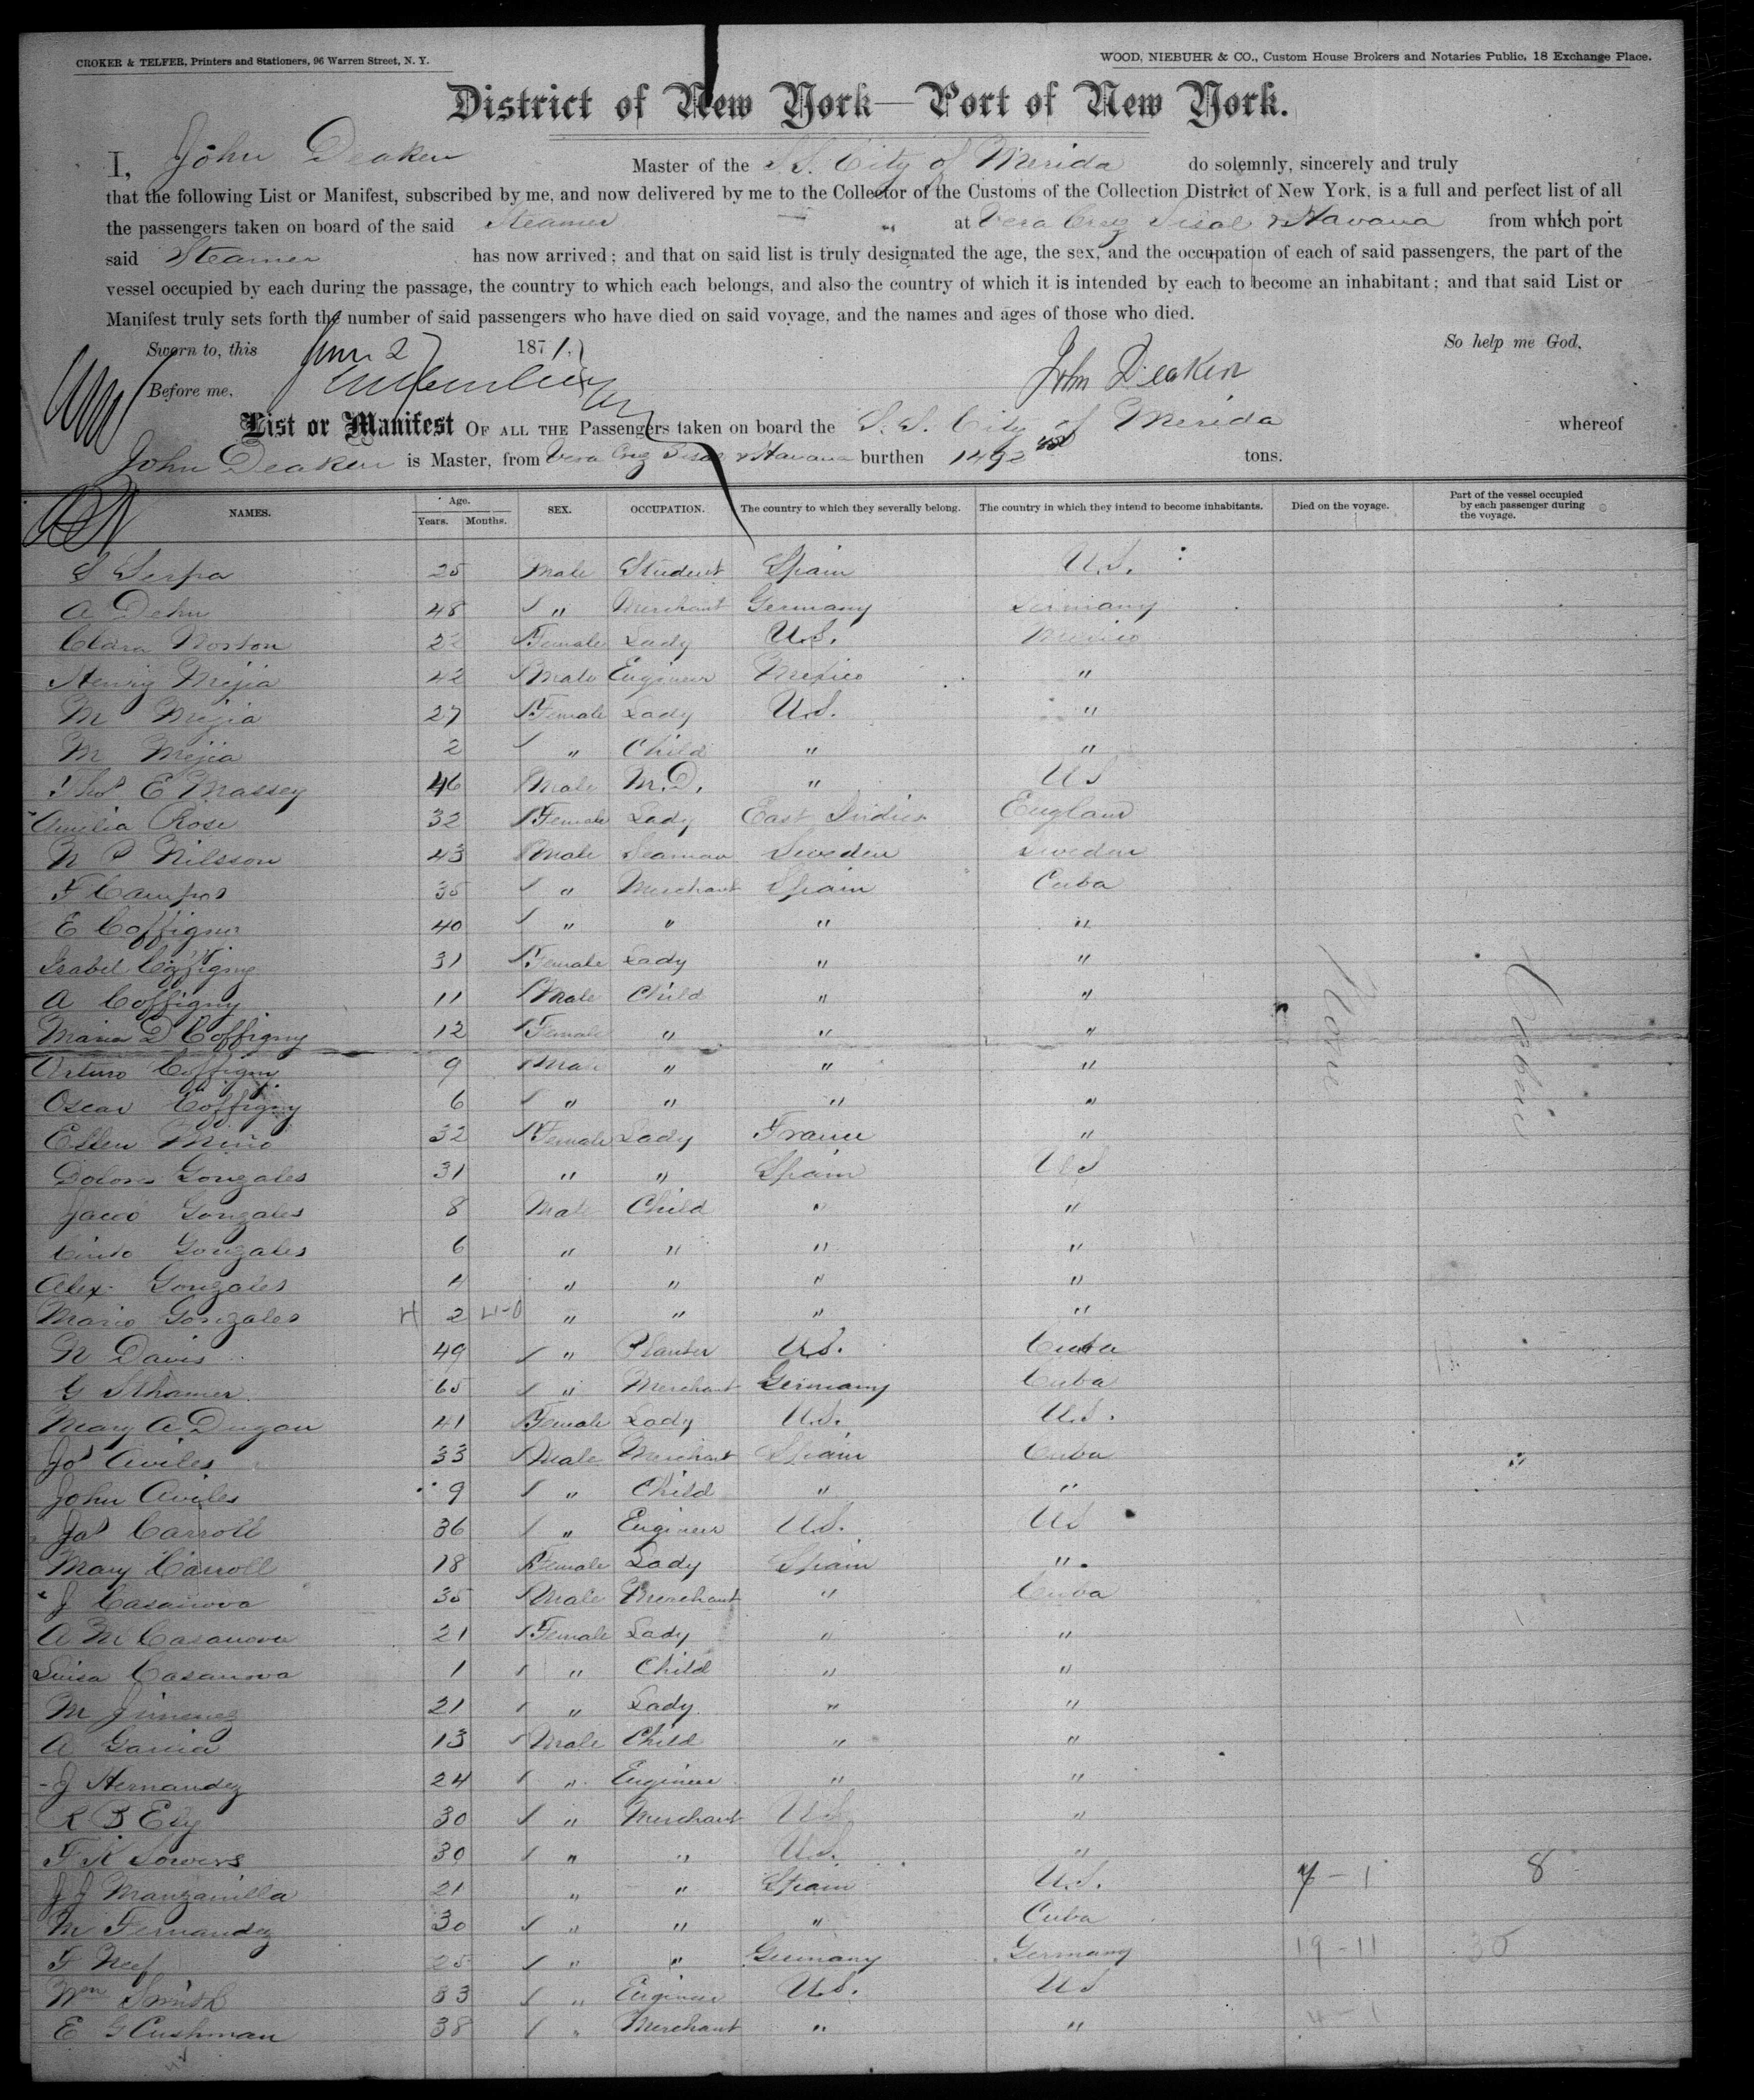 CROKER & TELFER, Printers and Stationers, 96 Warren Street, N. Y. WOOD, NIEBUHR & CO., Custom House Brokers and Notaries Public, 18 Exchange Place.
District of New York—Port of New York.
I, John Deaken Master of the S.S. City of Merida do solemnly, sincerely and truly
that the following List or Manifest, subscribed by me, and now delivered by me to the Collector of the Customs of the Collection District of New York, is a full and perfect list of all
the passengers taken on board of the said Steamer at Vera Cruz Sisal & Havana from which port
said Steamer has now arrived; and that on said list is truly designated the age, the sex, and the occupation of each of said passengers, the part of the
vessel occupied by each during the passage, the country to which each belongs, and also the country of which it is intended by each to become an inhabitant; and that said List or
Manifest truly sets forth the number of said passengers who have died on said voyage, and the names and ages of those who died.
Sworn to, this 2 1871, So help me God,
Before me, John Deaken
List or Manifest OF ALL THE Passengers taken on board the S.S. City of Merida whereof
John Deaken is Master, from Vera Cruz Sisal & Havana burthen 1492 tons.
NAMES. Age. Years. Months. SEX. OCCUPATION. The country to which they severally belong. The country in which they intend to become inhabitants. Died on the voyage. Part of the vessel occupied by each passenger during the voyage.
S Serpa 25 Male Student Spain U.S.
A Dehn 48 " Merchant Germany Germany
Clara Norton 22 Female Lady U.S. Mexico
Henry Mejia 42 Male Engineer Mexico "
M Mejia 27 Female Lady U.S. "
M Mejia 2 " Child " "
Thos E Massey 46 Male M.D. " U S
Amelia Rose 32 Female Lady East Indies England
N P Nilsson 43 Male Seaman Sweden Sweden
F Campos 35 " Merchant Spain Cuba
E Coffigny 40 " " " "
Isabel Coffigny 31 Female Lady " "
A Coffigny 11 Male Child " "
Maria D Coffigny 12 Female " " "
Arturo Coffigny 9 Male " " "
Oscar Coffigny 6 " " " "
Ellen 32 Female Lady France "
Dolores Gonzales 31 " " Spain U S
Gonzales 8 Male Child " "
Gonzales 6 " " " "
Alex Gonzales 4 " " " "
Mario Gonzales 2 " " " "
N Davis 49 " Planter U.S. Cuba
G Sthamer 65 " Merchant Germany Cuba
Mary A Dugan 41 Female Lady U.S. U.S.
Jos Aviles 33 Male Merchant Spain Cuba
John Aviles 9 " Child " "
Jas Carroll 36 " Engineer U.S. U S
Mary Carroll 18 Female Lady Spain "
J Casanova 35 Male Merchant " Cuba
A M Casanova 21 Female Lady " "
Luisa Casanova 1 " Child " "
M Jimenez 21 " Lady " "
A Garcia 13 Male Child " "
J Hernandez 24 " Engineer " "
R B Ely 30 " Merchant U S "
F K Sowers 30 " " U.S. "
J J Manzanilla 21 " " Spain U.S. 7-1 8
M Fernandez 30 " " " Cuba
F Neef 25 " " Germany Germany 19-11 30
Wm Smith 33 " Engineer U.S. U S
E G Cushman 38 " Merchant " " 4-1
None
Cabin